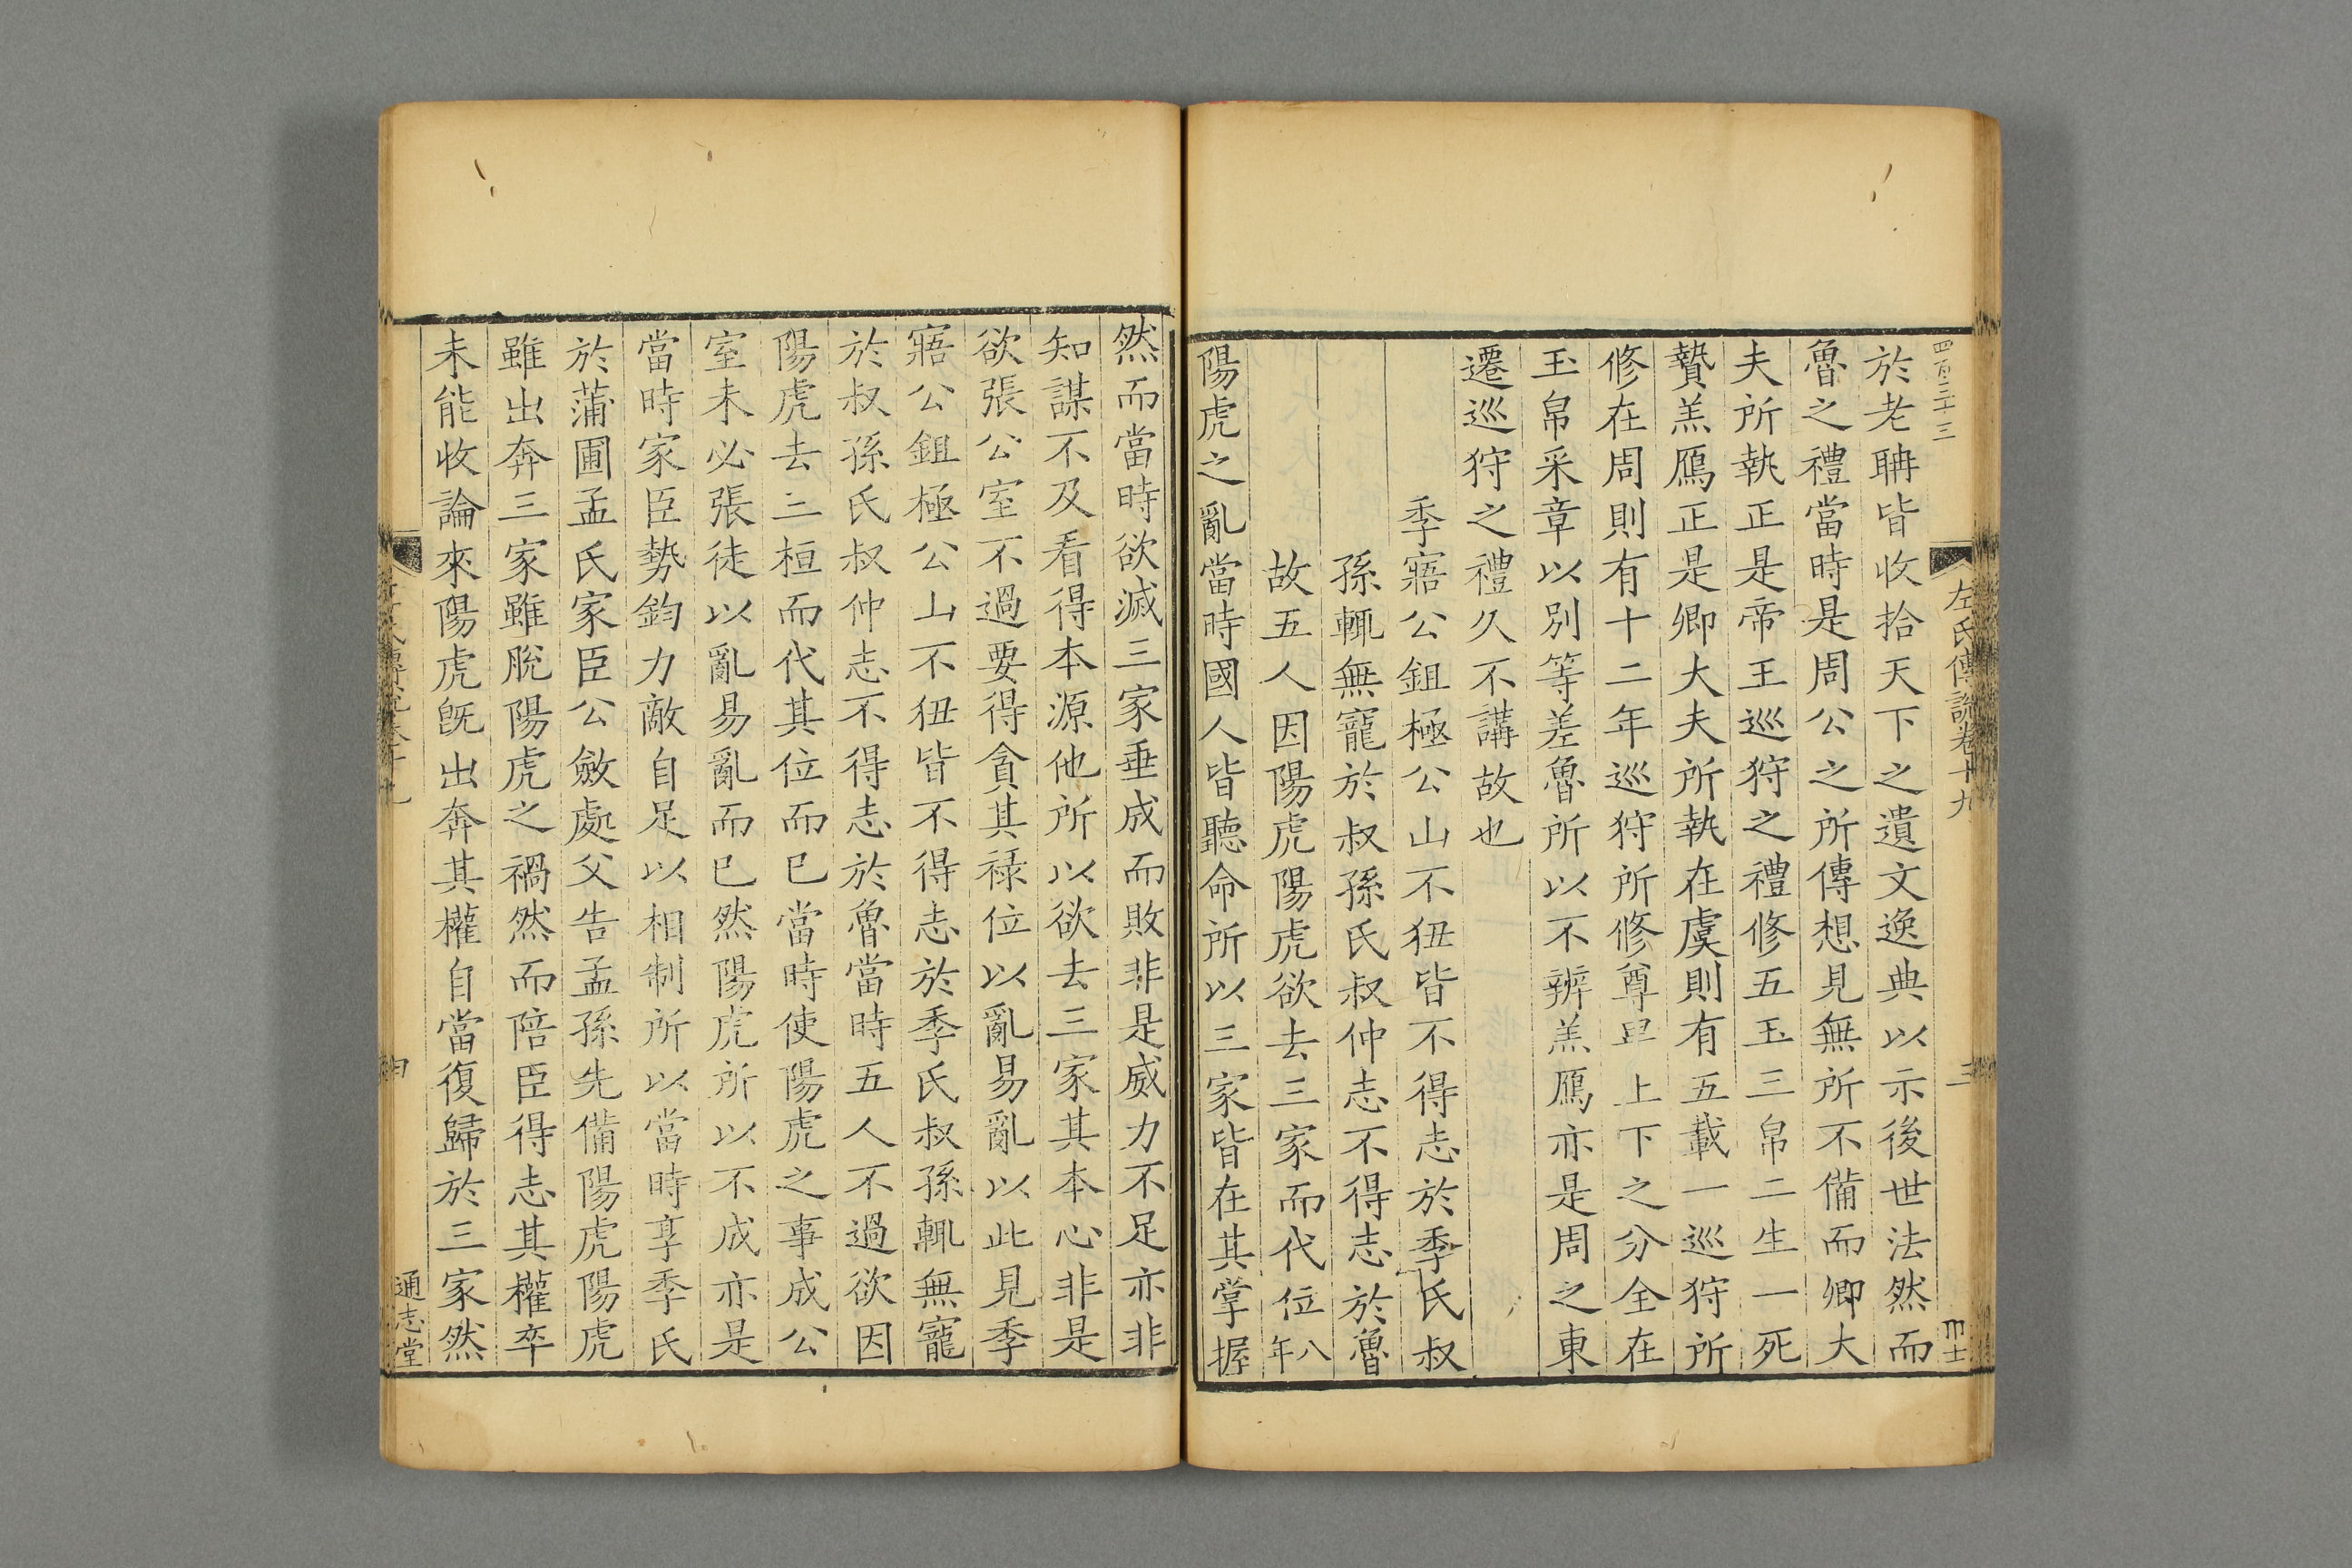 四百二十三
左氏傳說卷十九
三
於老聃皆收拾天下之遺文逸典以示後世法然而
魯之禮當時是周公之所傳想見無所不備而卿大
夫所執正是帝王巡狩之禮修五玉三帛二生一死
贄羔鴈正是卿大夫所執在虞則有五載一巡狩所
修在周則有十二年巡狩所修尊卑上下之分全在
玉帛采章以別等差魯所以不辨羔鴈亦是周之東
遷巡狩之禮久不講故也
季寤公鉏極公山不狃皆不得志於季氏叔
孫輒無寵於叔孫氏叔仲志不得志於魯
故五人因陽虎陽虎欲去三家而代位八年
陽虎之亂當時國人皆聽命所以三家皆在其掌握
然而當時欲滅三家垂成而敗非是威力不足亦非
知謀不及看得本源他所以欲去三家其本心非是
欲張公室不過要得貪其祿位以亂易亂以此見季
寤公鉏極公山不狃皆不得志於季氏叔孫輒無寵
於叔孫氏叔仲志不得志於魯當時五人不過欲因
陽虎去三桓而代其位而已當時使陽虎之事成公
室未必張徒以亂易亂而已然陽虎所以不成亦是
當時家臣勢鈞力敵自足以相制所以當時享季氏
於蒲圃孟氏家臣公斂處父告孟孫先備陽虎陽虎
雖出奔三家雖脫陽虎之禍然而陪臣得志其權卒
未能收論來陽虎旣出奔其權自當復歸於三家然
通志堂